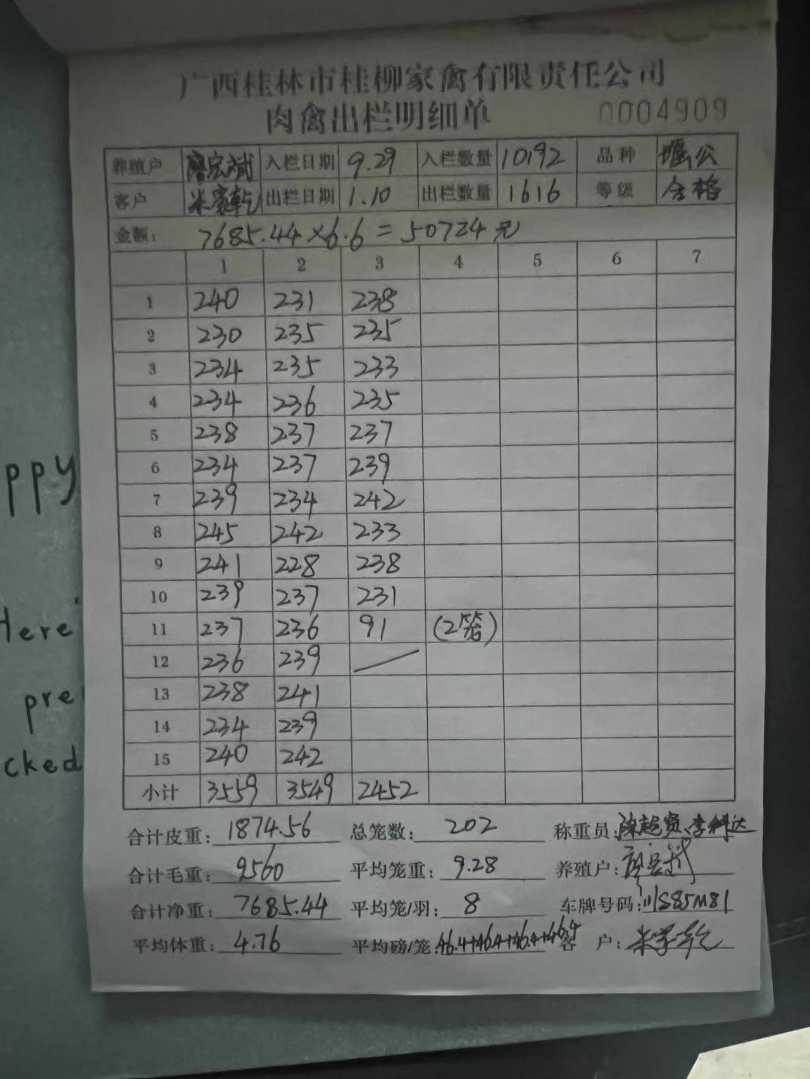 广西桂林市桂柳家禽有限责任公司
肉禽出栏明细单 0004909
养殖户 廖宏斌 入栏日期 9.29 入栏数量 10192 品种 公
客户 出栏日期 1.10 出栏数量 1616 等级 合格
金额: 7685.44×6.6=50724元
1 2 3 4 5 6 7
1 240 231 238
2 230 235 235
3 234 235 233
4 234 236 235
5 238 237 237
6 234 237 239
7 239 234 242
8 245 242 233
9 241 228 238
10 239 237 231
11 237 236 91 (2笼)
12 236 239
13 238 241
14 234 239
15 240 242
小计 3559 3549 2452
合计皮重: 1874.56 总笼数: 202 称重员:
合计毛重: 9560 平均笼重: 9.28 养殖户:
合计净重: 7685.44 平均笼/羽: 8 车牌号码: 川S85M81
平均体重: 4.76 平均磅/笼: 46.4+46.4+46.4+46.4 客户:
ppy
Here'
pre
cked